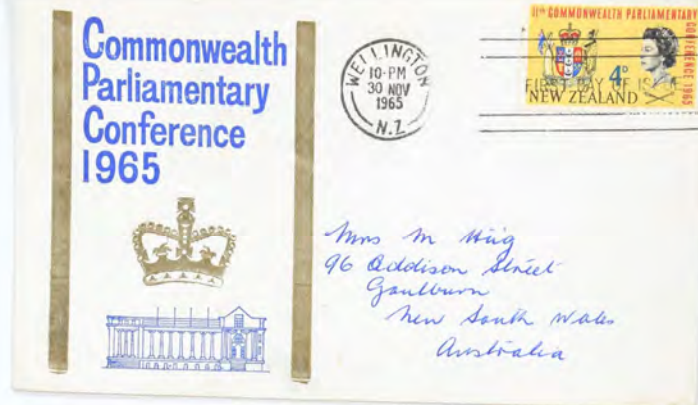 Commonwealth
Parliamentary
Conference
1965
WELLINGTON
10-PM
30 NOV
1965
N.Z.
11th COMMONWEALTH PARLIAMENTARY
CONFERENCE 1965
4D
FIRST DAY OF
NEW ZEALAND
Mrs M
96 Addison Street
Goulburn
New South Wales
Australia